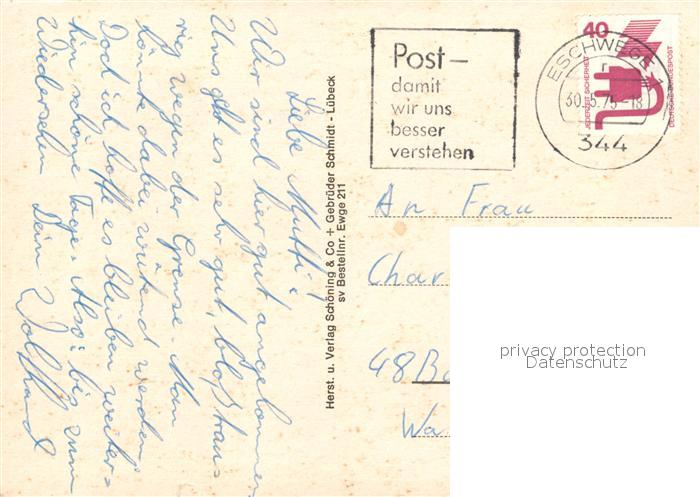 Liebe Mutti!
Wir sind hier gut angekommen
Uns geht es sehr gut, bloß trau-
rig wegen der Grenze. Man
könnte dabei wütend werden.
Doch ich hoffe es bleiben weiter-
hin schöne Tage. Also: bis zum
Wiedersehn Dein Wolfhard
Herst. u. Verlag Schöning & Co + Gebrüder Schmidt - Lübeck
sv Bestellnr. Ewge 211
Post –
damit
wir uns
besser
verstehen
ESCHWEGE 1
30.-5.75-18
344
40
JEDERZEIT SICHERHEIT
DEUTSCHE BUNDESPOST
An Frau
Char
48 B
Wa
privacy protection
Datenschutz